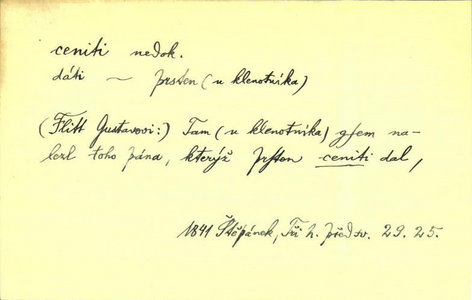 ceniti nedok.
dáti ~ prsten (u klenotníka)
(Flitt Gustavovi:) Tam (u klenotníka) gsem na-
lezl toho pána, kterýž prsten ceniti dal,
1841 Štěpánek, Tři h. před sv. 29. 25.